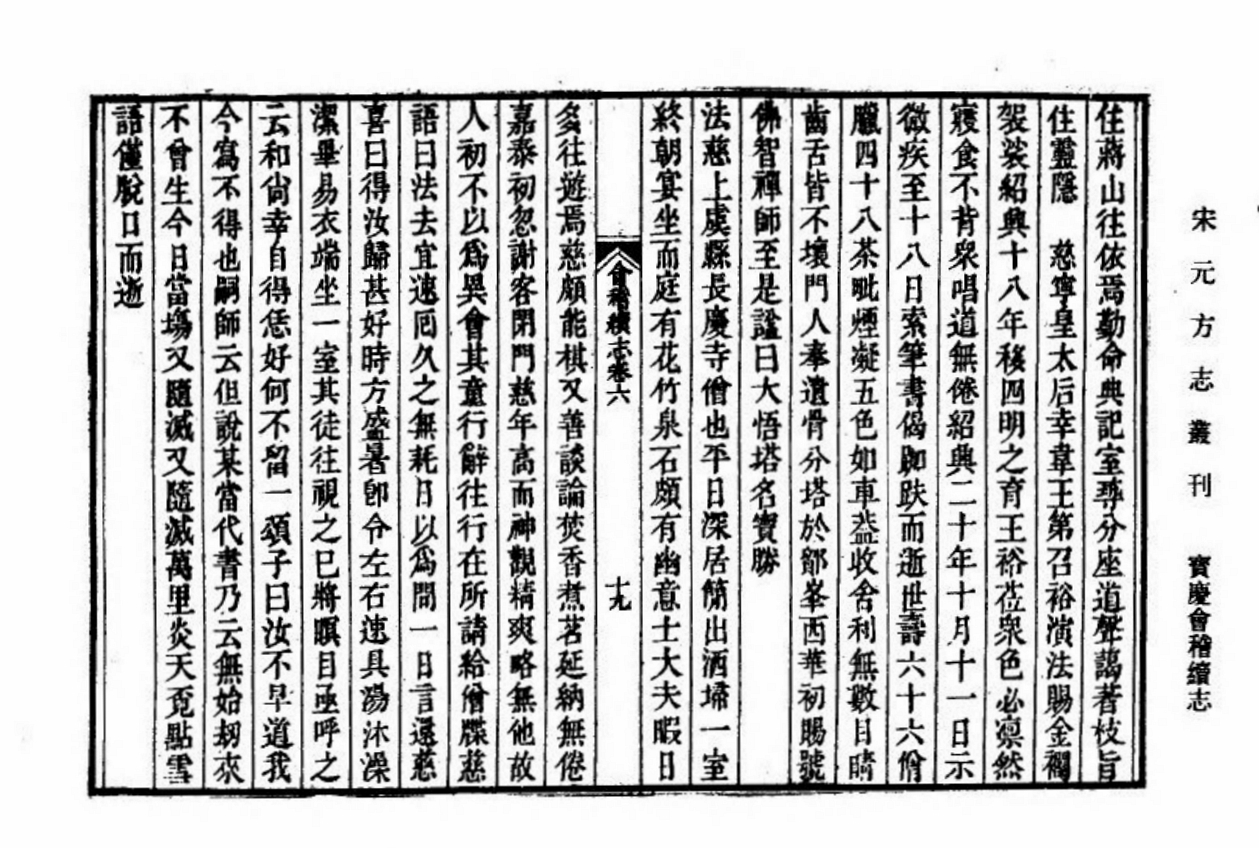 宋元方志叢刊　寶慶會稽續志
住蔣山往依焉勤命典記室尋分座道聲藹著被旨
住靈隱　慈寧皇太后幸韋王第召裕演法賜金襴
袈裟紹興十八年移四明之育王裕莅衆色必凛然
寢食不背衆唱道無倦紹興二十年十月十一日示
微疾至十八日索筆書偈跏趺而逝世壽六十六僧
臘四十八茶毗煙凝五色如車蓋收舍利無數目睛
齒舌皆不壞門人奉遺骨分塔於鄮峯西華初賜號
佛智禪師至是諡曰大悟塔名寶勝
法慈上虞縣長慶寺僧也平日深居簡出洒埽一室
終朝宴坐而庭有花竹泉石頗有幽意士大夫暇日
會稽續志卷六　十九
多往遊焉慈頗能棋又善談論焚香煮茗延納無倦
嘉泰初忽謝客閉門慈年高而神觀精爽略無他故
人初不以爲異會其童行辭往行在所請給僧牒慈
語曰法去宜速囘久之無耗日以爲問一日言還慈
喜曰得汝歸甚好時方盛暑卽令左右速具湯沐澡
潔畢易衣端坐一室其徒往視之已將瞑目亟呼之
云和尙幸自得恁好何不留一頌子曰汝不早道我
今寫不得也嗣師云但說某當代書乃云無始刼來
不曾生今日當塲又隨滅又隨滅萬里炎天覓點雪
語僅脫口而逝